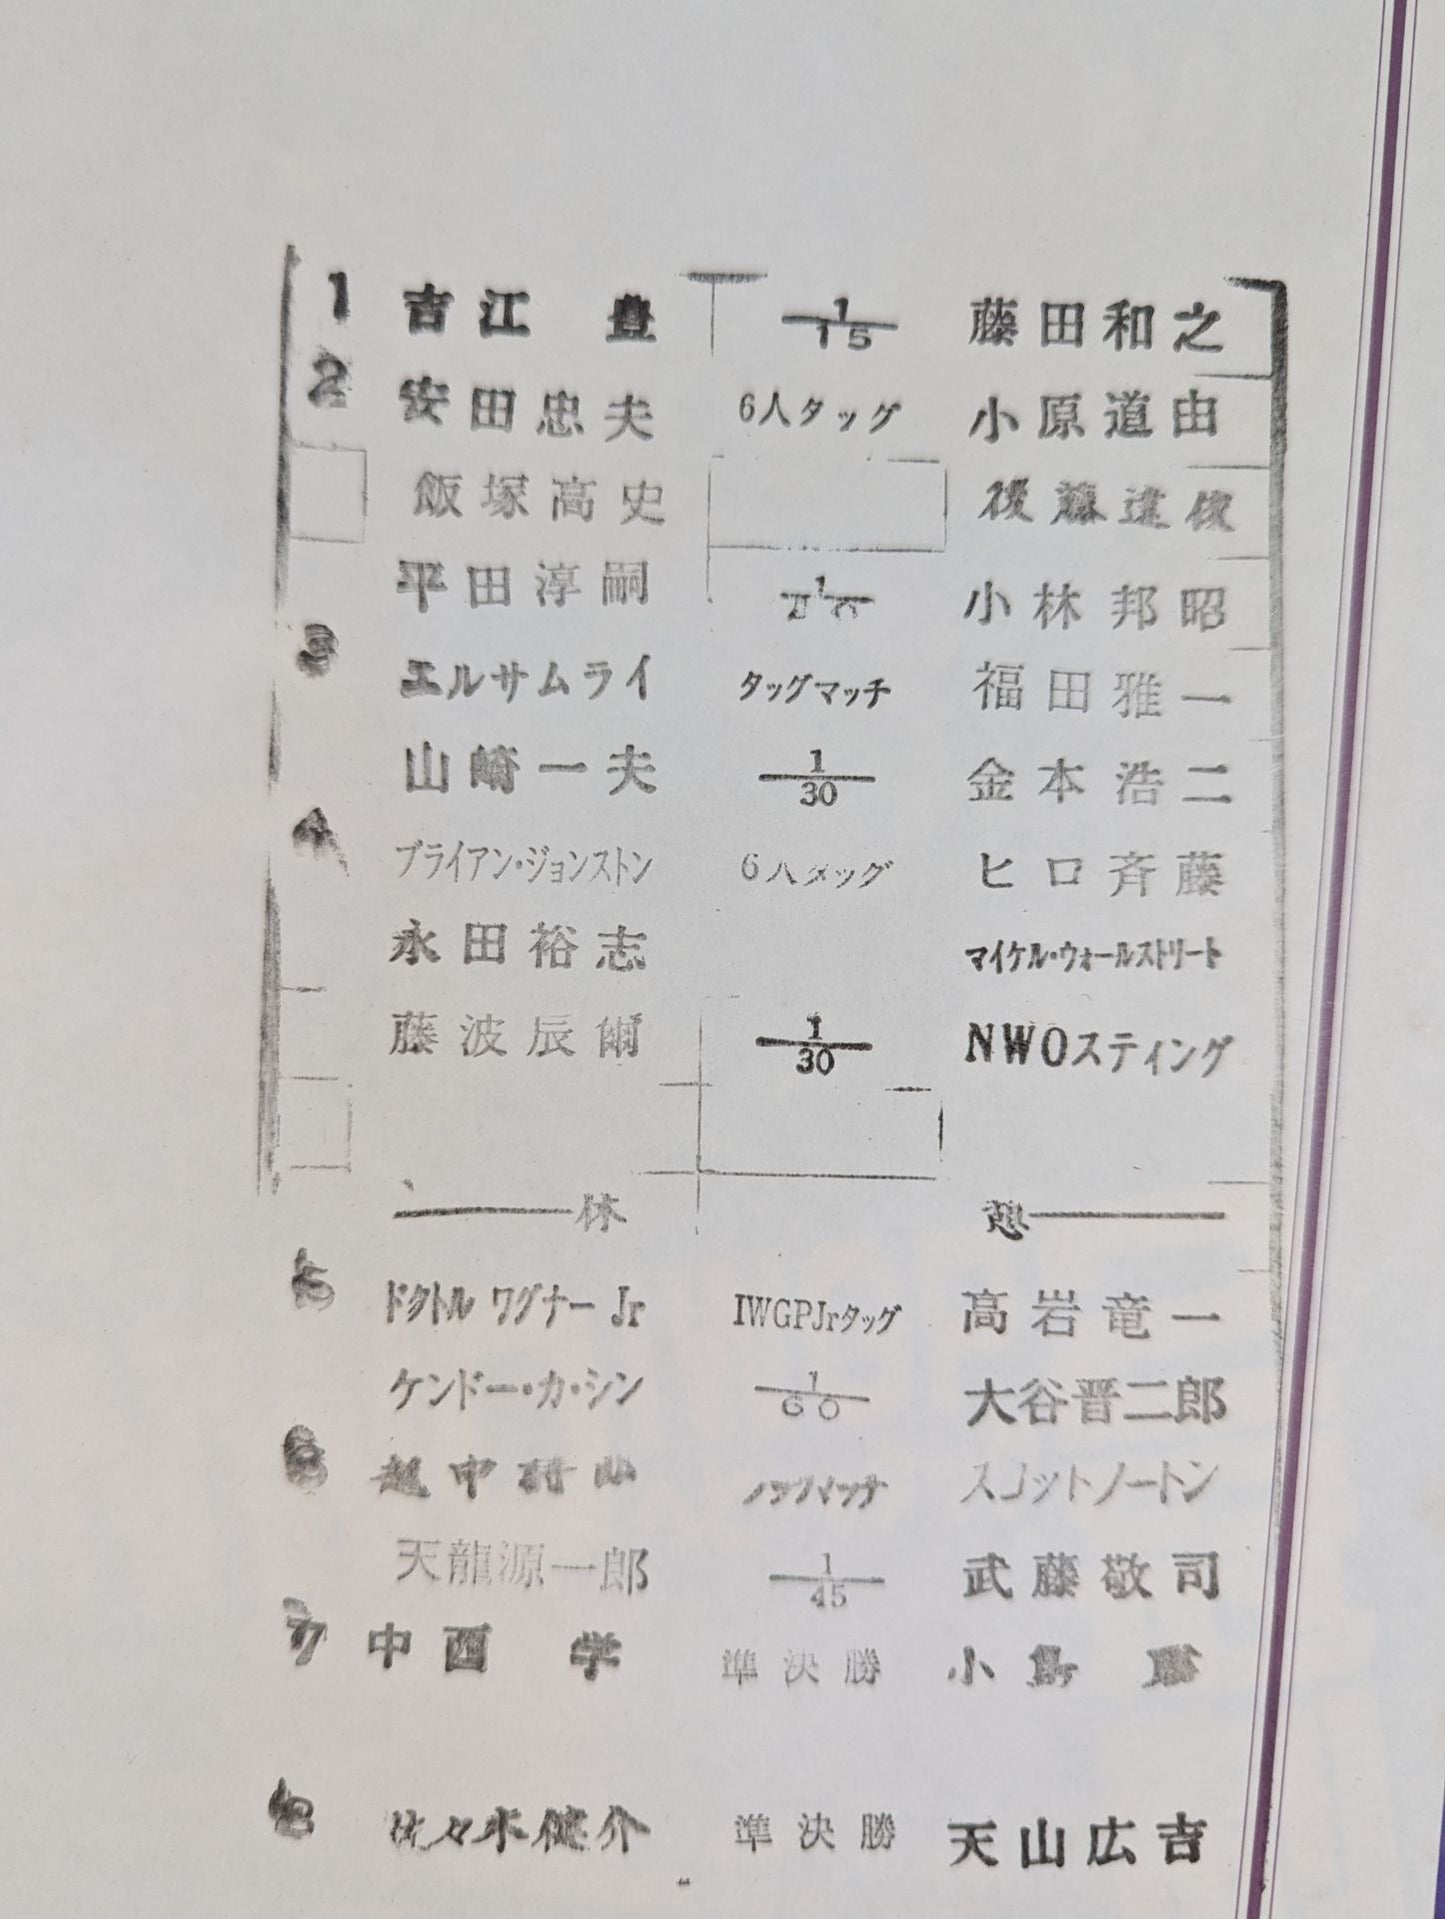 1 吉江 豊 1/15 藤田和之
2 安田忠夫 6人タッグ 小原道由
飯塚高史 後藤達俊
平田淳嗣 小林邦昭
3 エルサムライ タッグマッチ 福田雅一
山崎一夫 1/30 金本浩二
4 ブライアン・ジョンストン 6人タッグ ヒロ斉藤
永田裕志 マイケル・ウォールストリート
藤波辰爾 1/30 NWOスティング
休 憩
5 ドクトル ワグナー Jr IWGPJrタッグ 高岩竜一
ケンドー・カ・シン 1/60 大谷晋二郎
6 越中詩郎 タッグマッチ スコットノートン
天龍源一郎 1/45 武藤敬司
7 中西 学 準決勝 小島 聡
8 佐々木健介 準決勝 天山広吉